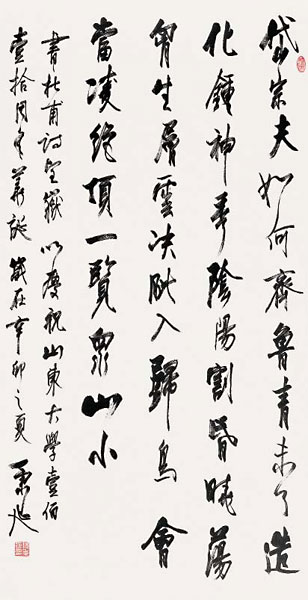 岱宗夫如何齊魯青未了造
化鍾神秀陰陽割昏曉蕩
胷生層雲決眦入歸鳥會
當凌絕頂一覽眾山小
書杜甫詩望嶽以慶祝山東大學壹佰
壹拾周年華誕歲在辛卯之夏